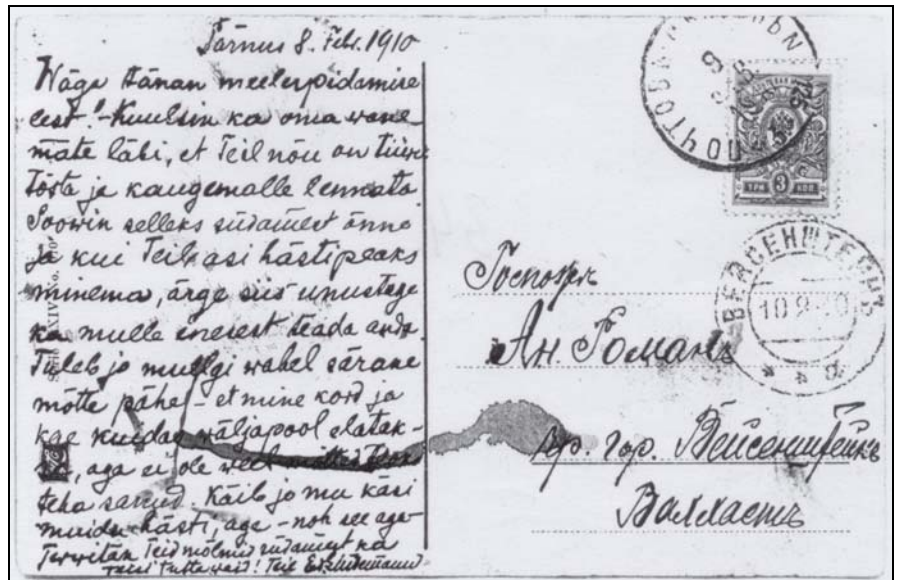 Pärnus 8. Febr. 1910
Wäga tänan meelespidamise
eest! - Kuulsin ka oma wane-
mate läbi, et Teil nõu on tiiwu
tõsta ja kaugemalle lennata
Soowin selleks südamest õnne
Ja kui Teil asi hästi peaks
minema, ärge siis unustage
ka mulle enesest teada anda
Tuleb jo mullgi wahel särane
mõtte pähe - et mine kord ja
kae kuidas wäljapool elatak-
aga ei ole weel
teha saanud. Käib jo mu käsi
muidu hästi, aga - noh see aga
Terwitan Teid mõlmid südamest ka
Teie
ПОЧТОВ
9
ТРИ 3 КОП
ВЕЙСЕНШТЕЙНЪ
10 2 10
Господ
Ан. Романъ
гор. Вейсенштейнъ
Валласть